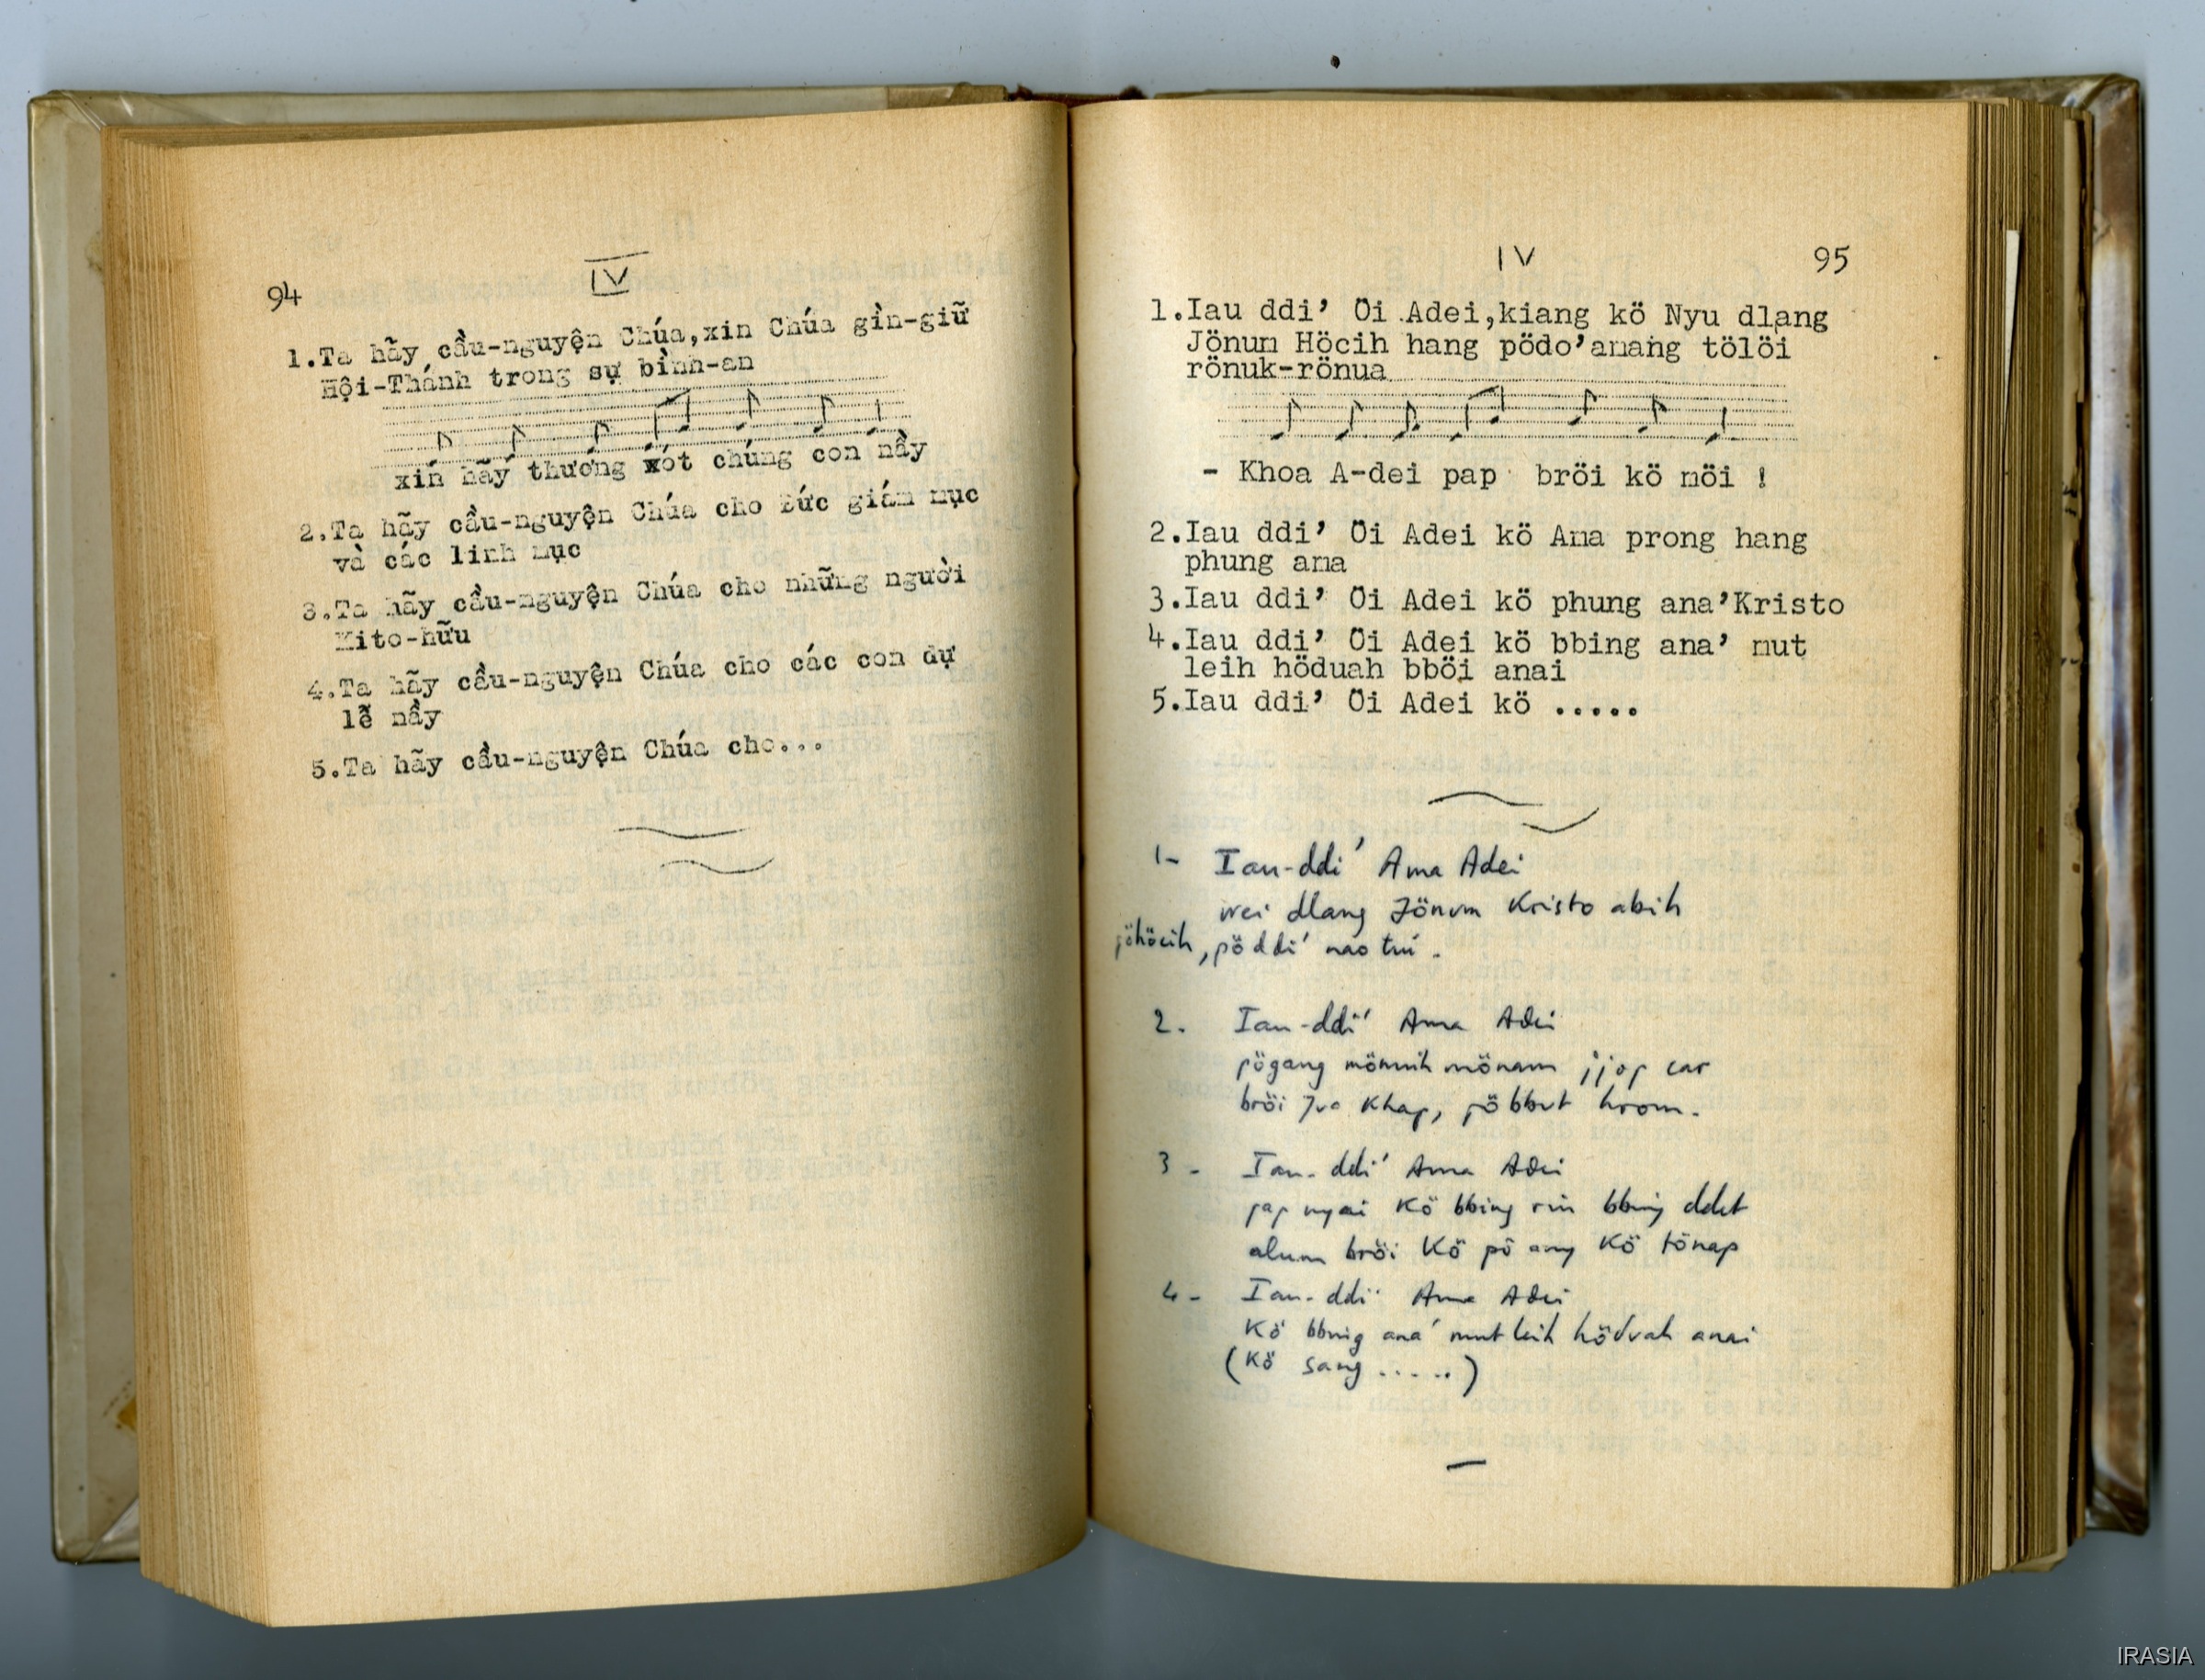 94
IV
1.Ta hãy cầu-nguyện Chúa,xin Chúa gìn-giữ
Hội-Thánh trong sự bình-an
xin hãy thương xót chúng con nầy
2.Ta hãy cầu-nguyện Chúa cho Đức giám mục
và các linh mục
3.Ta hãy cầu-nguyện Chúa cho những người
Kito-hữu
4.Ta hãy cầu-nguyện Chúa cho các con dự
lễ nầy
5.Ta hãy cầu-nguyện Chúa cho...
IV
95
1.Iau ddi' Öi Adei,kiang kö Nyu dlang
Jönum Höcih hang pödo'anang tölöi
rönuk-rönua
- Khoa A-dei pap bröi kö möi !
2.Iau ddi' Öi Adei kö Ama prong hang
phung ama
3.Iau ddi' Öi Adei kö phung ana'Kristo
4.Iau ddi' Öi Adei kö bbing ana' mut
leih höduah bböi anai
5.Iau ddi' Öi Adei kö .....
1- Iau-ddi' Ama Adei
wei dlang Jönum Kristo abih
pöhöcih, pöddi' nao tui.
2. Iau-ddi' Ama Adei
pögang mönuih mönam jjop car
bröi khap, pöbbut hrom.
3 - Iau-ddi' Ama Adei
pap nyai kö bbing rin bbing ddet
alum bröi kö pö ang kö tönap
4 - Iau-ddi' Ama Adei
kö bbing ana' mut leih höduah anai
(kö sang .....)
IRASIA